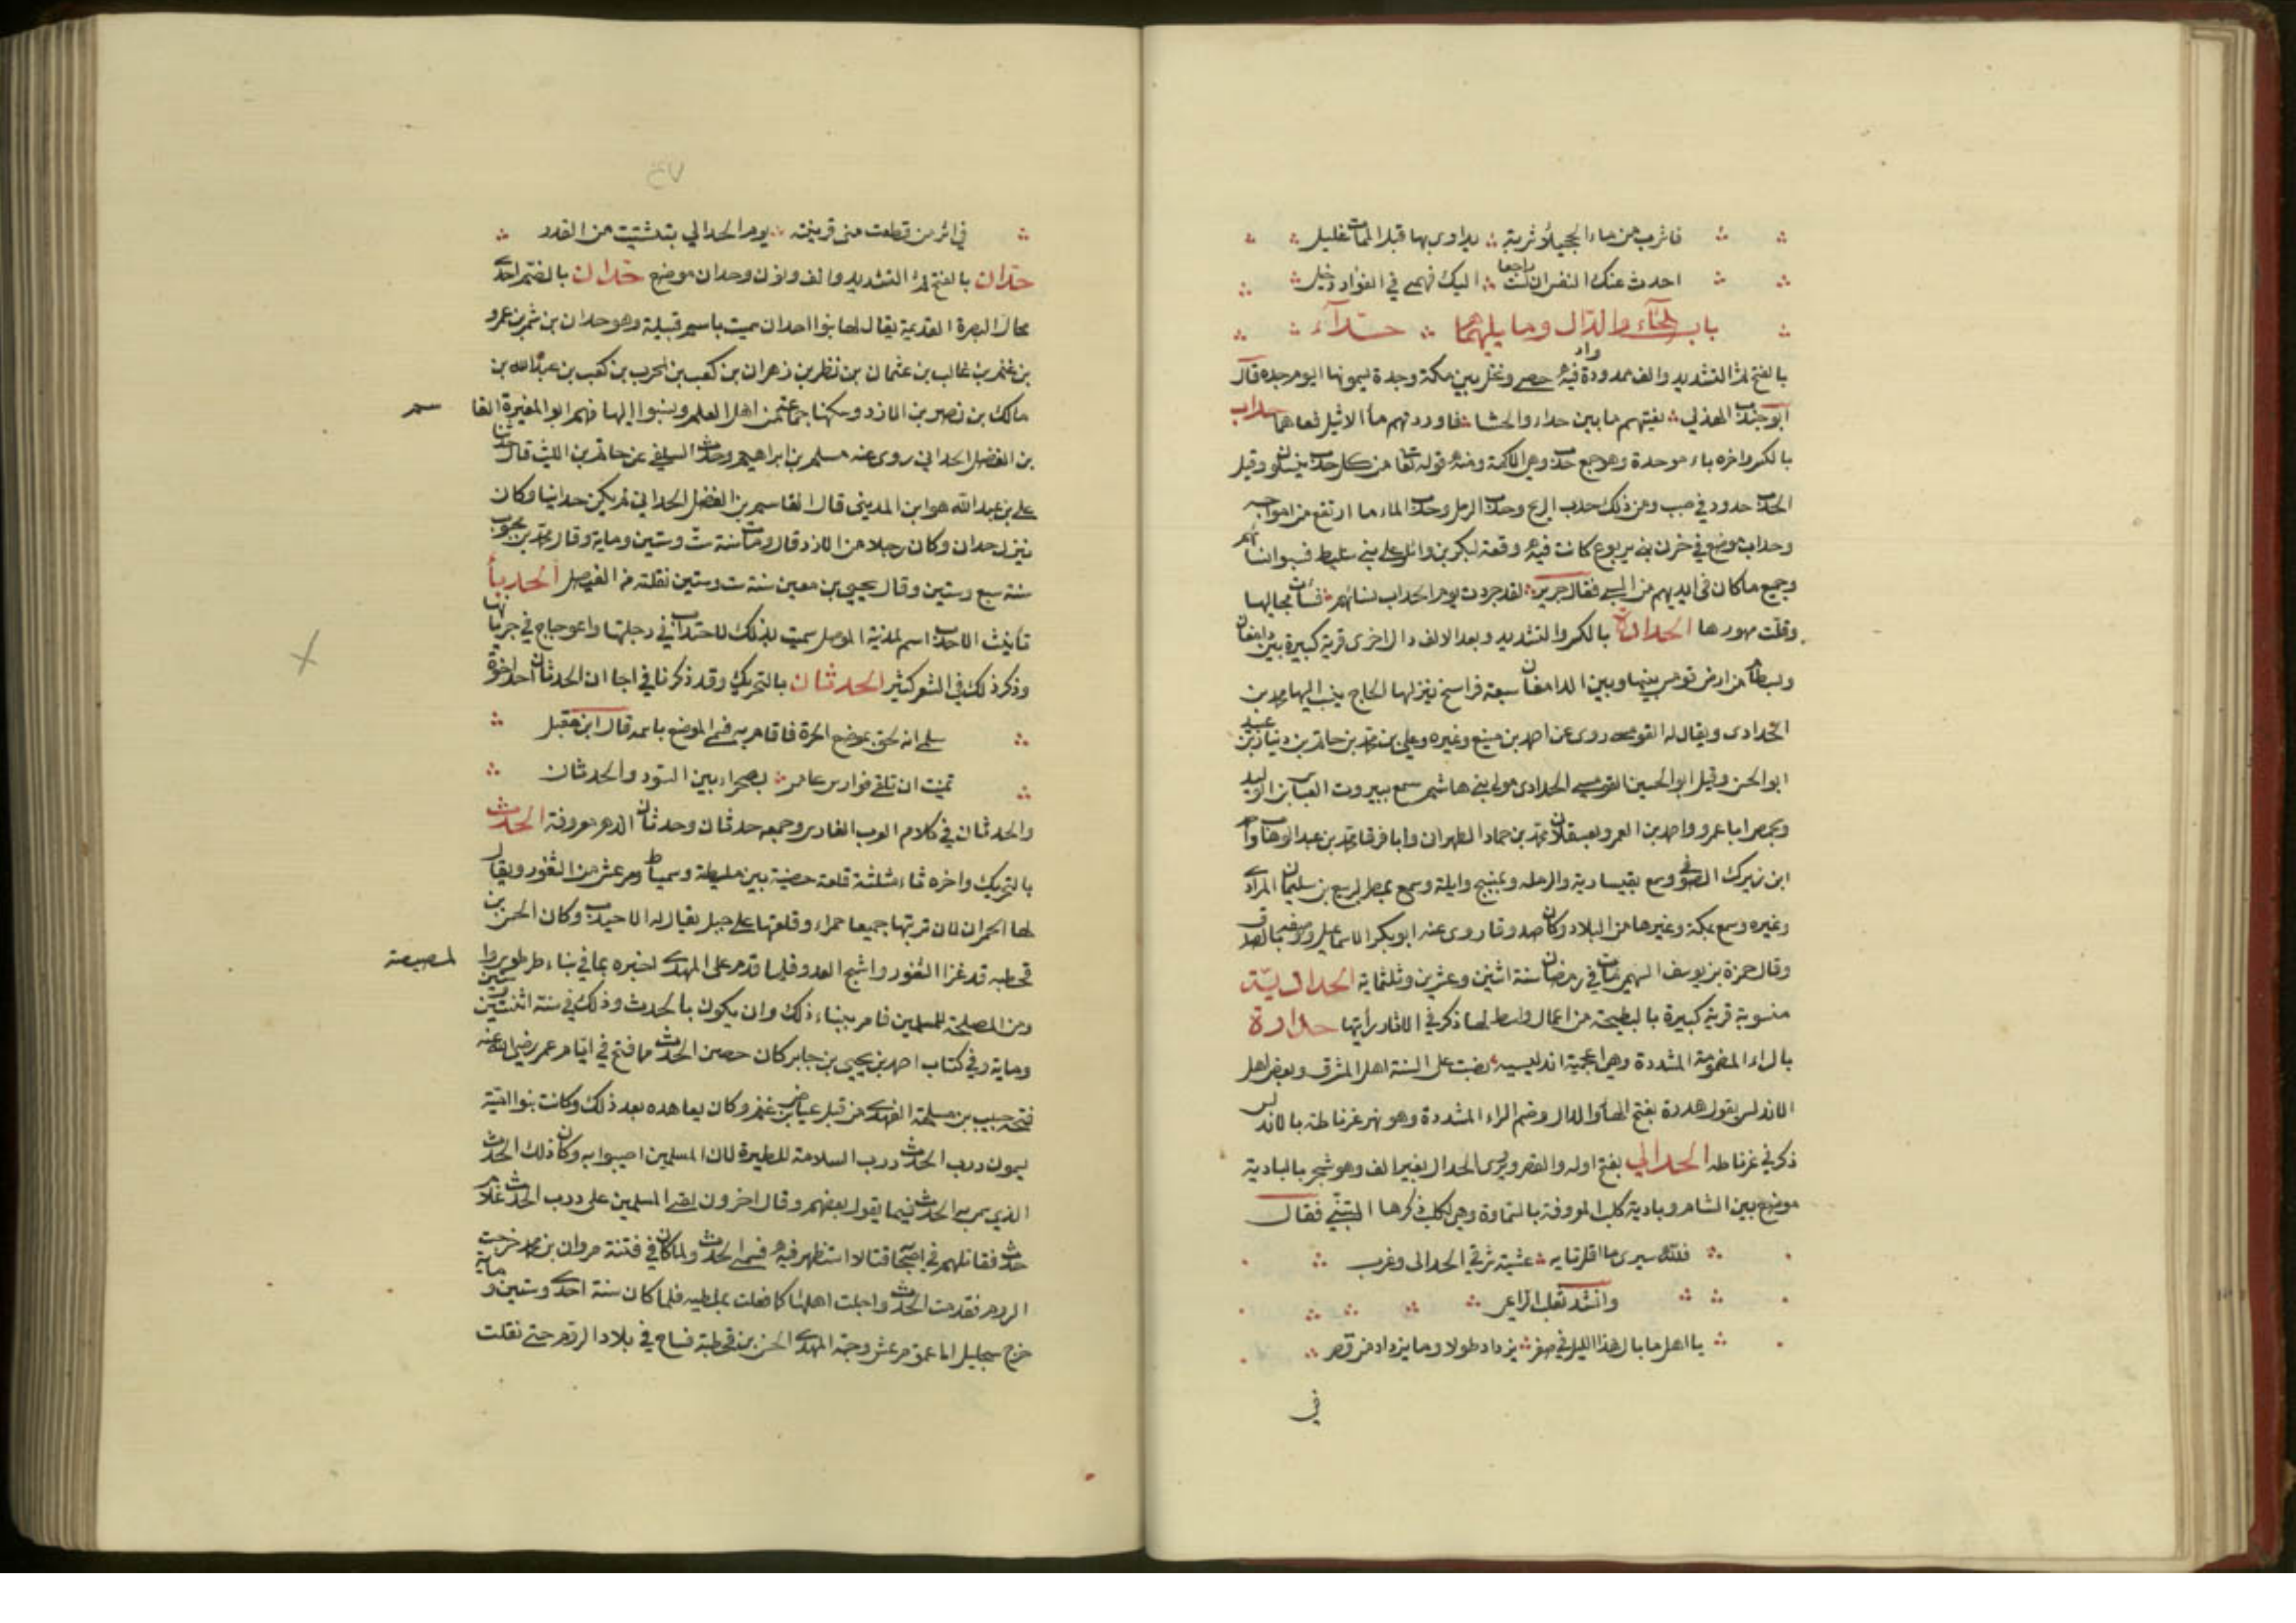 فاشرب من ماء الحجيلاء شربة يداوى بها قبل الممات غليل
احدث عنك النفس ان لست راجعا اليك فهمى في الفؤاد دخيل
باب الحاء والدال وما يليهما حداء
بالفتح ثم التشديد والف ممدودة واد فيه حصى ونخل بين مكة وجدة يسمونها اليوم حده قال
ابو جندب الهذلي بغيتهم ما بين حداء والحشا فاوردتهم ماء الاثيل فعاهما حداب
بالكسر واخره باء موحدة وهو جمع حدب وهى الاكمة ومنه قوله تعا من كل حدب ينسلون وقيل
الحدب حدود في صبب ومن ذلك حدب الريح وحدب الرمل وحدب الماء ما ارتفع من امواجه
وحداب موضع في حزن بنى يربوع كانت فيه وقعة لبكر بن وائل على بنى سليط فسبوا نساءهم
وجميع ما كان في ايديهم من السبى فقال جرير لقد جردت يوم الحداب نساءهم فساءت مجاليها
وقلت مهورها الحدادة بالكسر والتشديد وبعد الالف دال اخرى قرية كبيرة بين دامغان
وبسطام من ارض قومس بينها وبين الدامغان سبعة فراسخ ينزلها الحاج ينسب اليها محمد بن
الحدادى ويقال له القومسى روى عن احمد بن منيع وغيره وعلى بن محمد بن حاتم بن دينار بن عبيد
ابو الحسن وقيل ابو الحسين القومسى الحدادى مولى بنى هاشم سمع ببيروت العباس بن الوليد
وبحمص ابا عمرو واحمد بن المعمر وبعسقلان محمد بن حماد الطهران وابا قرفا محمد بن عبد الوهاب وا
ابن زيرك الصوفى وسمع بقيسارية والرمله وبمنبج وايلة وسمع بمصر الربيع بن سليمان المرادى
وغيره وسمع بمكة وغيرها من البلاد وكان صدوقا روى عنه ابو بكر الاسماعيلى ووصفه بالصدق
وقال حمزة بن يوسف السهمى مات في رمضان سنة اثنين وعشرين وثلثماية الحدادية
منسوبة قرية كبيرة بالبطيحة من اعمال واسط لها ذكر في الاثار رأيتها حدارة
بالراء المضمومة المشددة وهى اعجمية اندلسيه نصبت على السنة اهل المشرق وبعض اهل
الاندلس يقول هدرة بفتح الهاء والدال وضم الراء المشددة وهو نهر غرناطة بالاندلس
ذكر في غرناطه الحدالى بفتح اوله والقصر ويروى الحدال بغير الف وهو شجر بالبادية
موضع بين الشام وبادية كلب المعروفة بالسماوة وهى لكلب ذكرها المتنبى فقال
فلله سيرى ما اقل تايه عشية شرقى الحدالى وغرب
وانشد ثعلب الراعى
يا اهل ما بال هذا الليل في صفر يزداد طولا وما يزداد من قصر
في
٤٧
في اثر من قطعت منى قرينته يوم الحدالى بتشتيت من القدر
حدان بالفتح ثم التشديد والف ونون وحدان موضع حدان بالضم احدى
محال البصرة القديمة يقال لها بنوا حدان سميت باسم قبيلة وهو حدان بن شمر بن عمرو
بن غنم بن غالب بن عثمان بن نظر بن زهران بن كعب بن الحرب بن كعب بن عبد الله بن
مالك بن نصر بن الازد وسكنها جماعة من اهل العلم ونسبوا اليها فمنهم ابو المغيرة القا سم
بن الفضل الحدانى روى عنه مسلم بن ابراهيم وحدث السلفى عن حاتم بن الليث قال حدثنا
على بن عبد الله هو ابن المدينى قال القاسم بن الفضل الحدانى لم يكن حدانيا وكان
ينزل حدان وكان رجلا من الازد قال ومات سنة ست وستين وماية وقال محمد بن محبوب
سنة سبع وستين وقال يحيى بن معين سنة ست وستين نقلته من الفيصل الحدباء
تأنيث الاحدب اسم لمدينة الموصل سميت بذلك لاحتداب في دجلتها واعوجاج في جريانها
وذكر ذلك في الشعر كثير الحدثان بالتحريك وقد ذكرنا في اجا ان الحدثان احد اخوة
سلمى انه لحق بموضع الحرة فاقام به فسمى الموضع باسمه قال ابن مقبل
تمنيت ان تلقى فوارس عامر بصحراء بين السود والحدثان
والحدثان في كلام العرب الفادر وجمعه حدثان وحدثان الدهر معروفة الحدث
بالتحريك واخره ثاء مثلثة قلعة حصينة بين ملطية وسميساط ومرعش من الثغور ويقال
لها الحمران لان تربتها جميعا حمراء وقلعتها على جبل يقال له الاحيدب وكان الحسن بن
قحطبه قد غزا الثغور واشج العدو فلما قدم على المهدى اخبره بما في بناء طرطوس وا لمصيصة
ومن المصلحة للمسلمين فامر ببناء ذلك وان يكون بالحدث وذلك في سنة اثنتين وستين
وماية وفي كتاب احمد بن يحيى بن جابر كان حصن الحدث مما فتح في ايام عمر رضى الله عنه
فتحه حبيب بن مسلمة الفهرى من قبل عياض بن غنم وكان يعاهده بعد ذلك وكانت بنوا امية
يسمون درب الحدث درب السلامة للطيرة لان المسلمين اصيبوا به وكان ذلك الحدث
الذى سمى به الحدث فيما يقول بعضهم وقال اخرون لقى المسلمين على درب الحدث غلام
حدث فقاتلهم في اصحابه قتالا استظهر فيه فسمى الحدث ولما كان في فتنة مروان بن محمد خرجت
الروم فقدمت الحدث واجلت اهلها كما فعلت بملطيه فلما كان سنة احدى وستين وماية
خرج ميخاييل الى عمق مرعش وجه المهدى الحسن بن قحطبة فساح في بلاد الروم حتى ثقلت